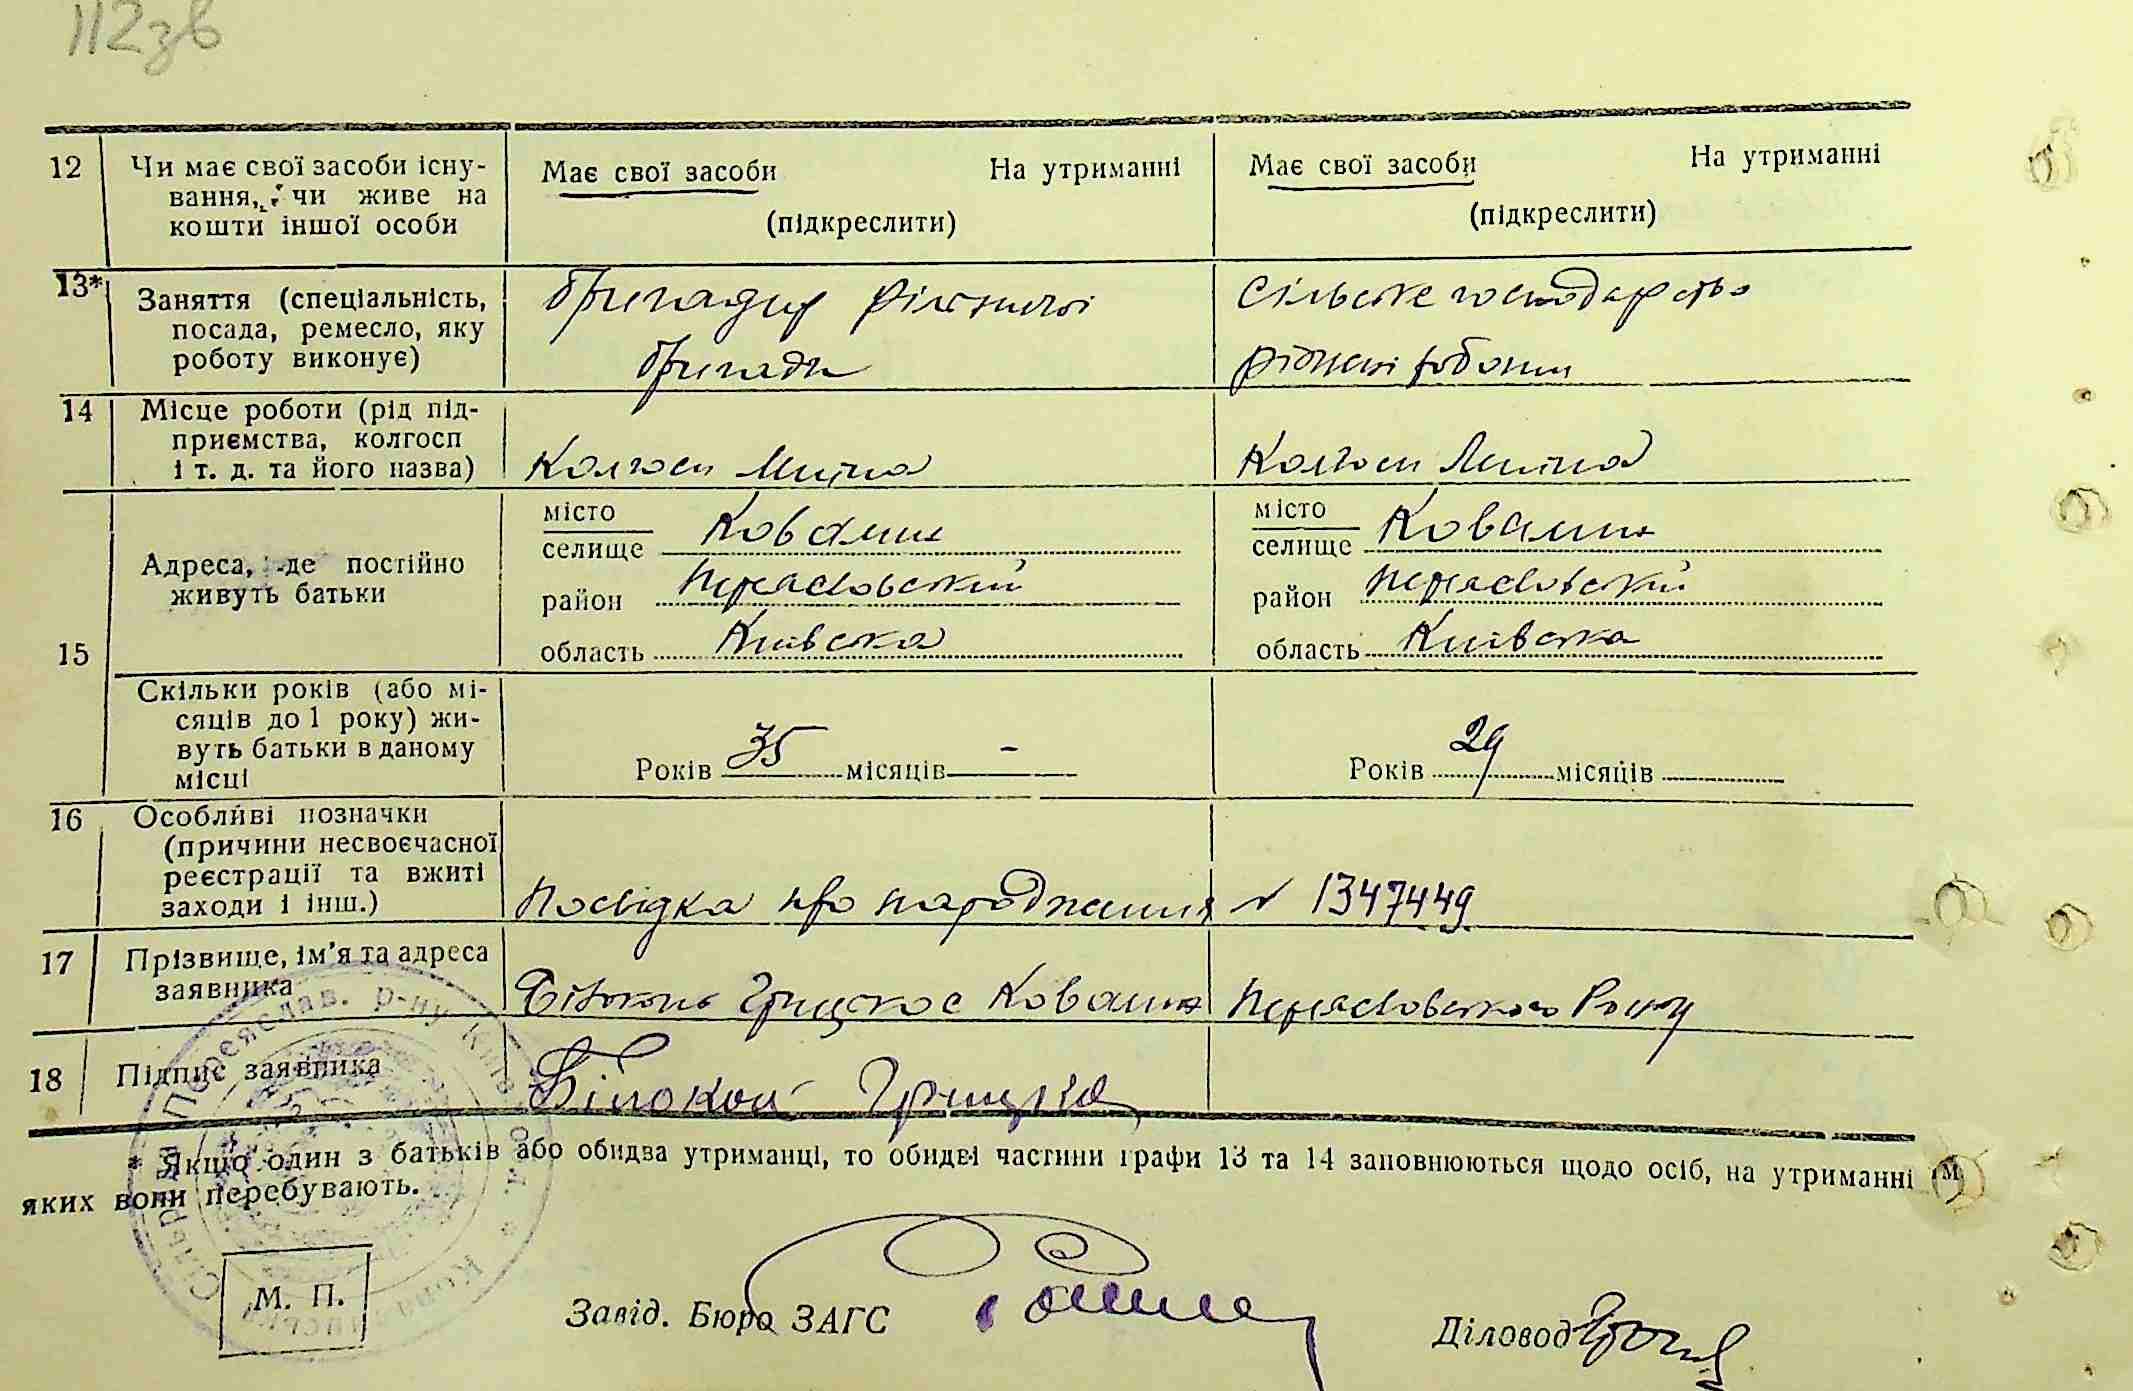 112зв
12 Чи має свої засоби існу-
вання, чи живе на
кошти іншої особи
Має свої засоби На утриманні
(підкреслити)
Має свої засоби На утриманні
(підкреслити)
13* Заняття (спеціальність,
посада, ремесло, яку
роботу виконує)
Бригадир рільничої
бригади
Сільське господарство
різнені роботи
14 Місце роботи (рід під-
приємства, колгосп
і т. д. та його назва)
Колгосп Леніна
Колгосп Леніна
15 Адреса, де постійно
живуть батьки
місто
селище Ковалин
район Переяславський
область Київська
місто
селище Ковалин
район Переяславський
область Київська
Скільки років (або мі-
сяців до 1 року) жи-
вуть батьки в даному
місці
Років 35 місяців –
Років 29 місяців
16 Особливі позначки
(причини несвоєчасної
реєстрації та вжиті
заходи і інш.)
Посвідка про народження № 1347449
17 Прізвище, ім'я та адреса
заявника
Білоконь Грицько с Ковалин Переяславського Р-ну
18 Підпис заявника
Білоконь Грицько
* Якщо один з батьків або обидва утриманці, то обидві частини графи 13 та 14 заповнюються щодо осіб, на утриманні
яких вони перебувають.
М. П.
Завід. Бюро ЗАГС
Діловод